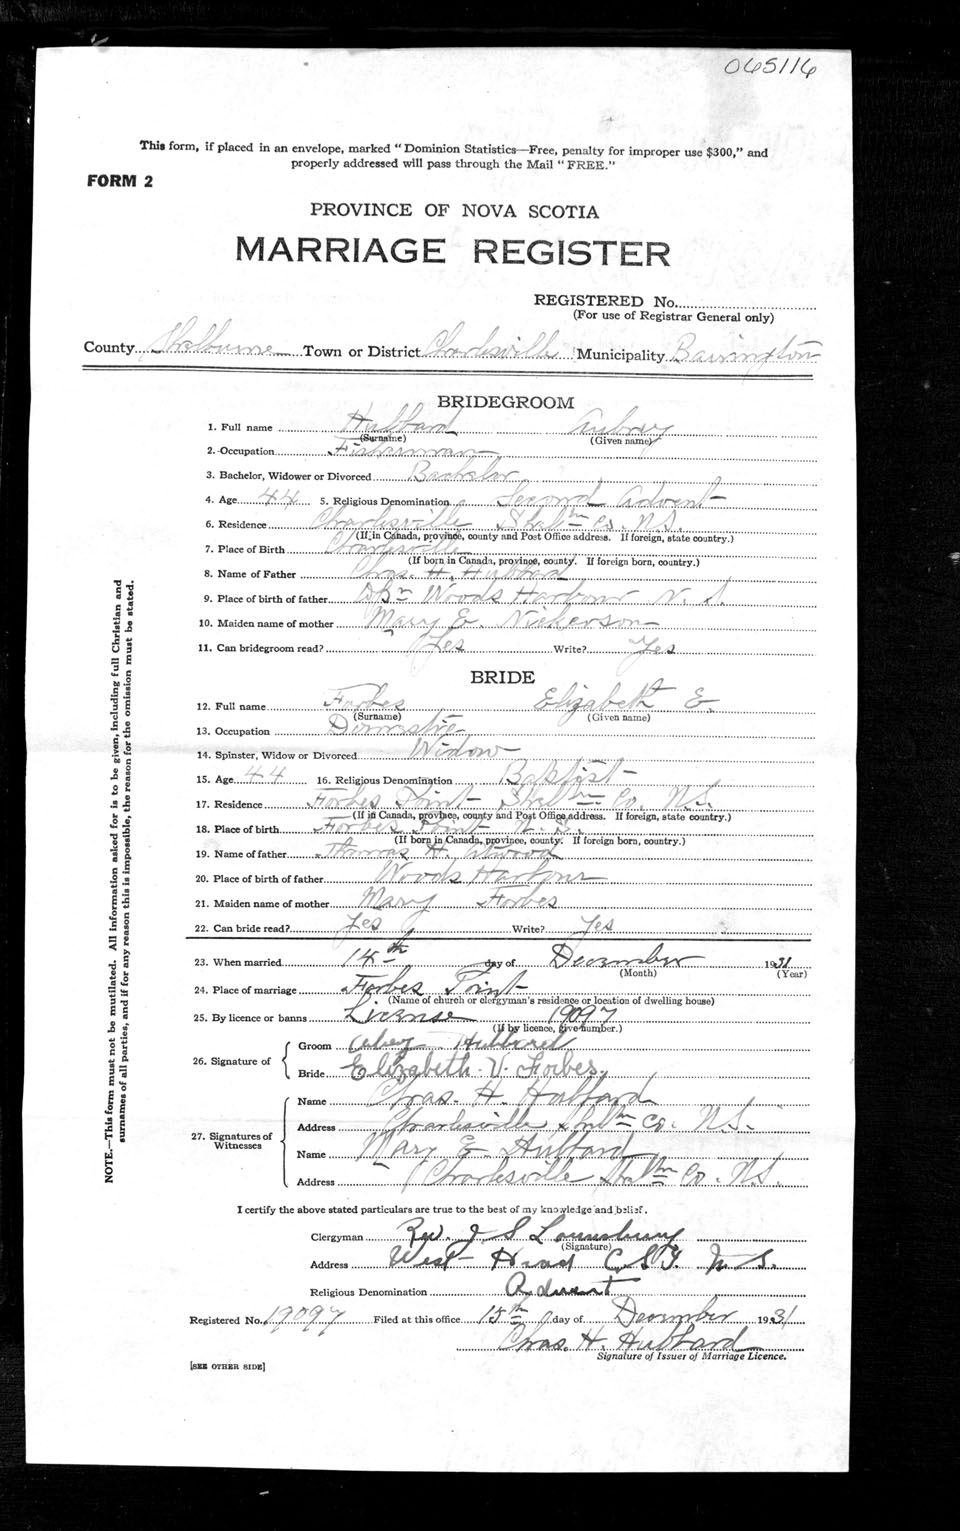 065116
This form, if placed in an envelope, marked "Dominion Statistics—Free, penalty for improper use $300," and
properly addressed will pass through the Mail "FREE."
FORM 2
PROVINCE OF NOVA SCOTIA
MARRIAGE REGISTER
REGISTERED No.
(For use of Registrar General only)
County Shelburne Town or District Charlesville Municipality Barrington
BRIDEGROOM
1. Full name Hubbard Aubrey
(Surname) (Given name)
2. Occupation Fisherman
3. Bachelor, Widower or Divorced Bachelor
4. Age 44 5. Religious Denomination Second Advent
6. Residence Charlesville Shelbne Co. N.S.
(If in Canada, province, county and Post Office address. If foreign, state country.)
7. Place of Birth Charlesville
(If born in Canada, province, county. If foreign born, country.)
8. Name of Father Chas. H. Hubbard
9. Place of birth of father Woods Harbour N.S.
10. Maiden name of mother Mary E. Nickerson
11. Can bridegroom read? Yes Write? Yes
BRIDE
12. Full name Forbes Elizabeth E.
(Surname) (Given name)
13. Occupation Domestic
14. Spinster, Widow or Divorced Widow
15. Age 44 16. Religious Denomination Baptist
17. Residence Forbes Point Shelbne Co. N.S.
(If in Canada, province, county and Post Office address. If foreign, state country.)
18. Place of birth Forbes Point N.S.
(If born in Canada, province, county. If foreign born, country.)
19. Name of father Thomas H. Atwood
20. Place of birth of father Woods Harbour
21. Maiden name of mother Mary Forbes
22. Can bride read? Yes Write? Yes
23. When married 14th day of December 1931
(Month) (Year)
24. Place of marriage Forbes Point
(Name of church or clergyman's residence or location of dwelling house)
25. By licence or banns License 19097
(If by licence, give number.)
26. Signature of Groom Hubbard
Bride Elizabeth V. Forbes
27. Signatures of Witnesses
Name Chas. H. Hubbard
Address Charlesville Co. N.S.
Name Mary E. Hubbard
Address Charlesville Shelbne Co. N.S.
I certify the above stated particulars are true to the best of my knowledge and belief.
Clergyman Rev. J S Lounsbury
(Signature)
Address West Head C.S.I. N.S.
Religious Denomination Advent
Registered No. 19097 Filed at this office 15th day of December 1931
Chas. H. Hubbard
Signature of Issuer of Marriage Licence.
[SEE OTHER SIDE]
NOTE.—This form must not be mutilated. All information asked for is to be given, including full Christian and
surnames of all parties, and if for any reason this is impossible, the reason for the omission must be stated.